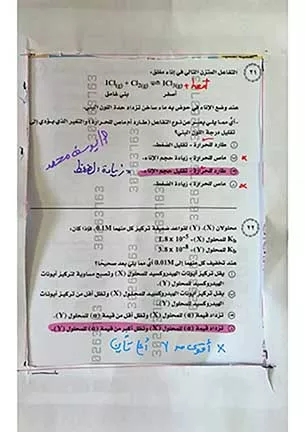 ٢١ التفاعل المتزن التالي في إناء مغلق:
ICl(g) + Cl2(g) ⇌ ICl3(g) + heat
بني غامق أصفر
عند وضع الإناء في حوض به ماء ساخن تزداد حدة اللون البني.
أي مما يلي يعبر عن نوع التفاعل (طارد أم ماص للحرارة) والتغير الذي يؤدي إلى
تقليل درجة اللون البني؟
طارد للحرارة - تقليل الضغط.
ماص للحرارة - تقليل حجم الإناء. x
طارد للحرارة - تقليل حجم الإناء.
زيادة الضغط
ماص للحرارة - زيادة الضغط. x
٢٢ محلولان (X)، (Y) لقواعد ضعيفة تركيز كل منهما 0.1M، فإذا كان:
Kb للمحلول (X)
Kb للمحلول (Y)
عند تخفيف كل منهما إلى 0.01M أي مما يلي يعد صحيحًا؟
يقل تركيز أيونات الهيدروكسيد للمحلول (X) وتصبح مساوية لتركيز أيونات
الهيدروكسيد للمحلول (Y).
يزداد تركيز أيونات الهيدروكسيد للمحلول (X) وتظل أقل من تركيز أيونات
الهيدروكسيد للمحلول (Y).
تزداد قيمة (α) للمحلول (X) وتظل أقل من قيمة (α) للمحلول (Y).
تزداد قيمة (α) للمحلول (X) وتظل أكبر من قيمة (α) للمحلول (Y).
X أقوى من Y